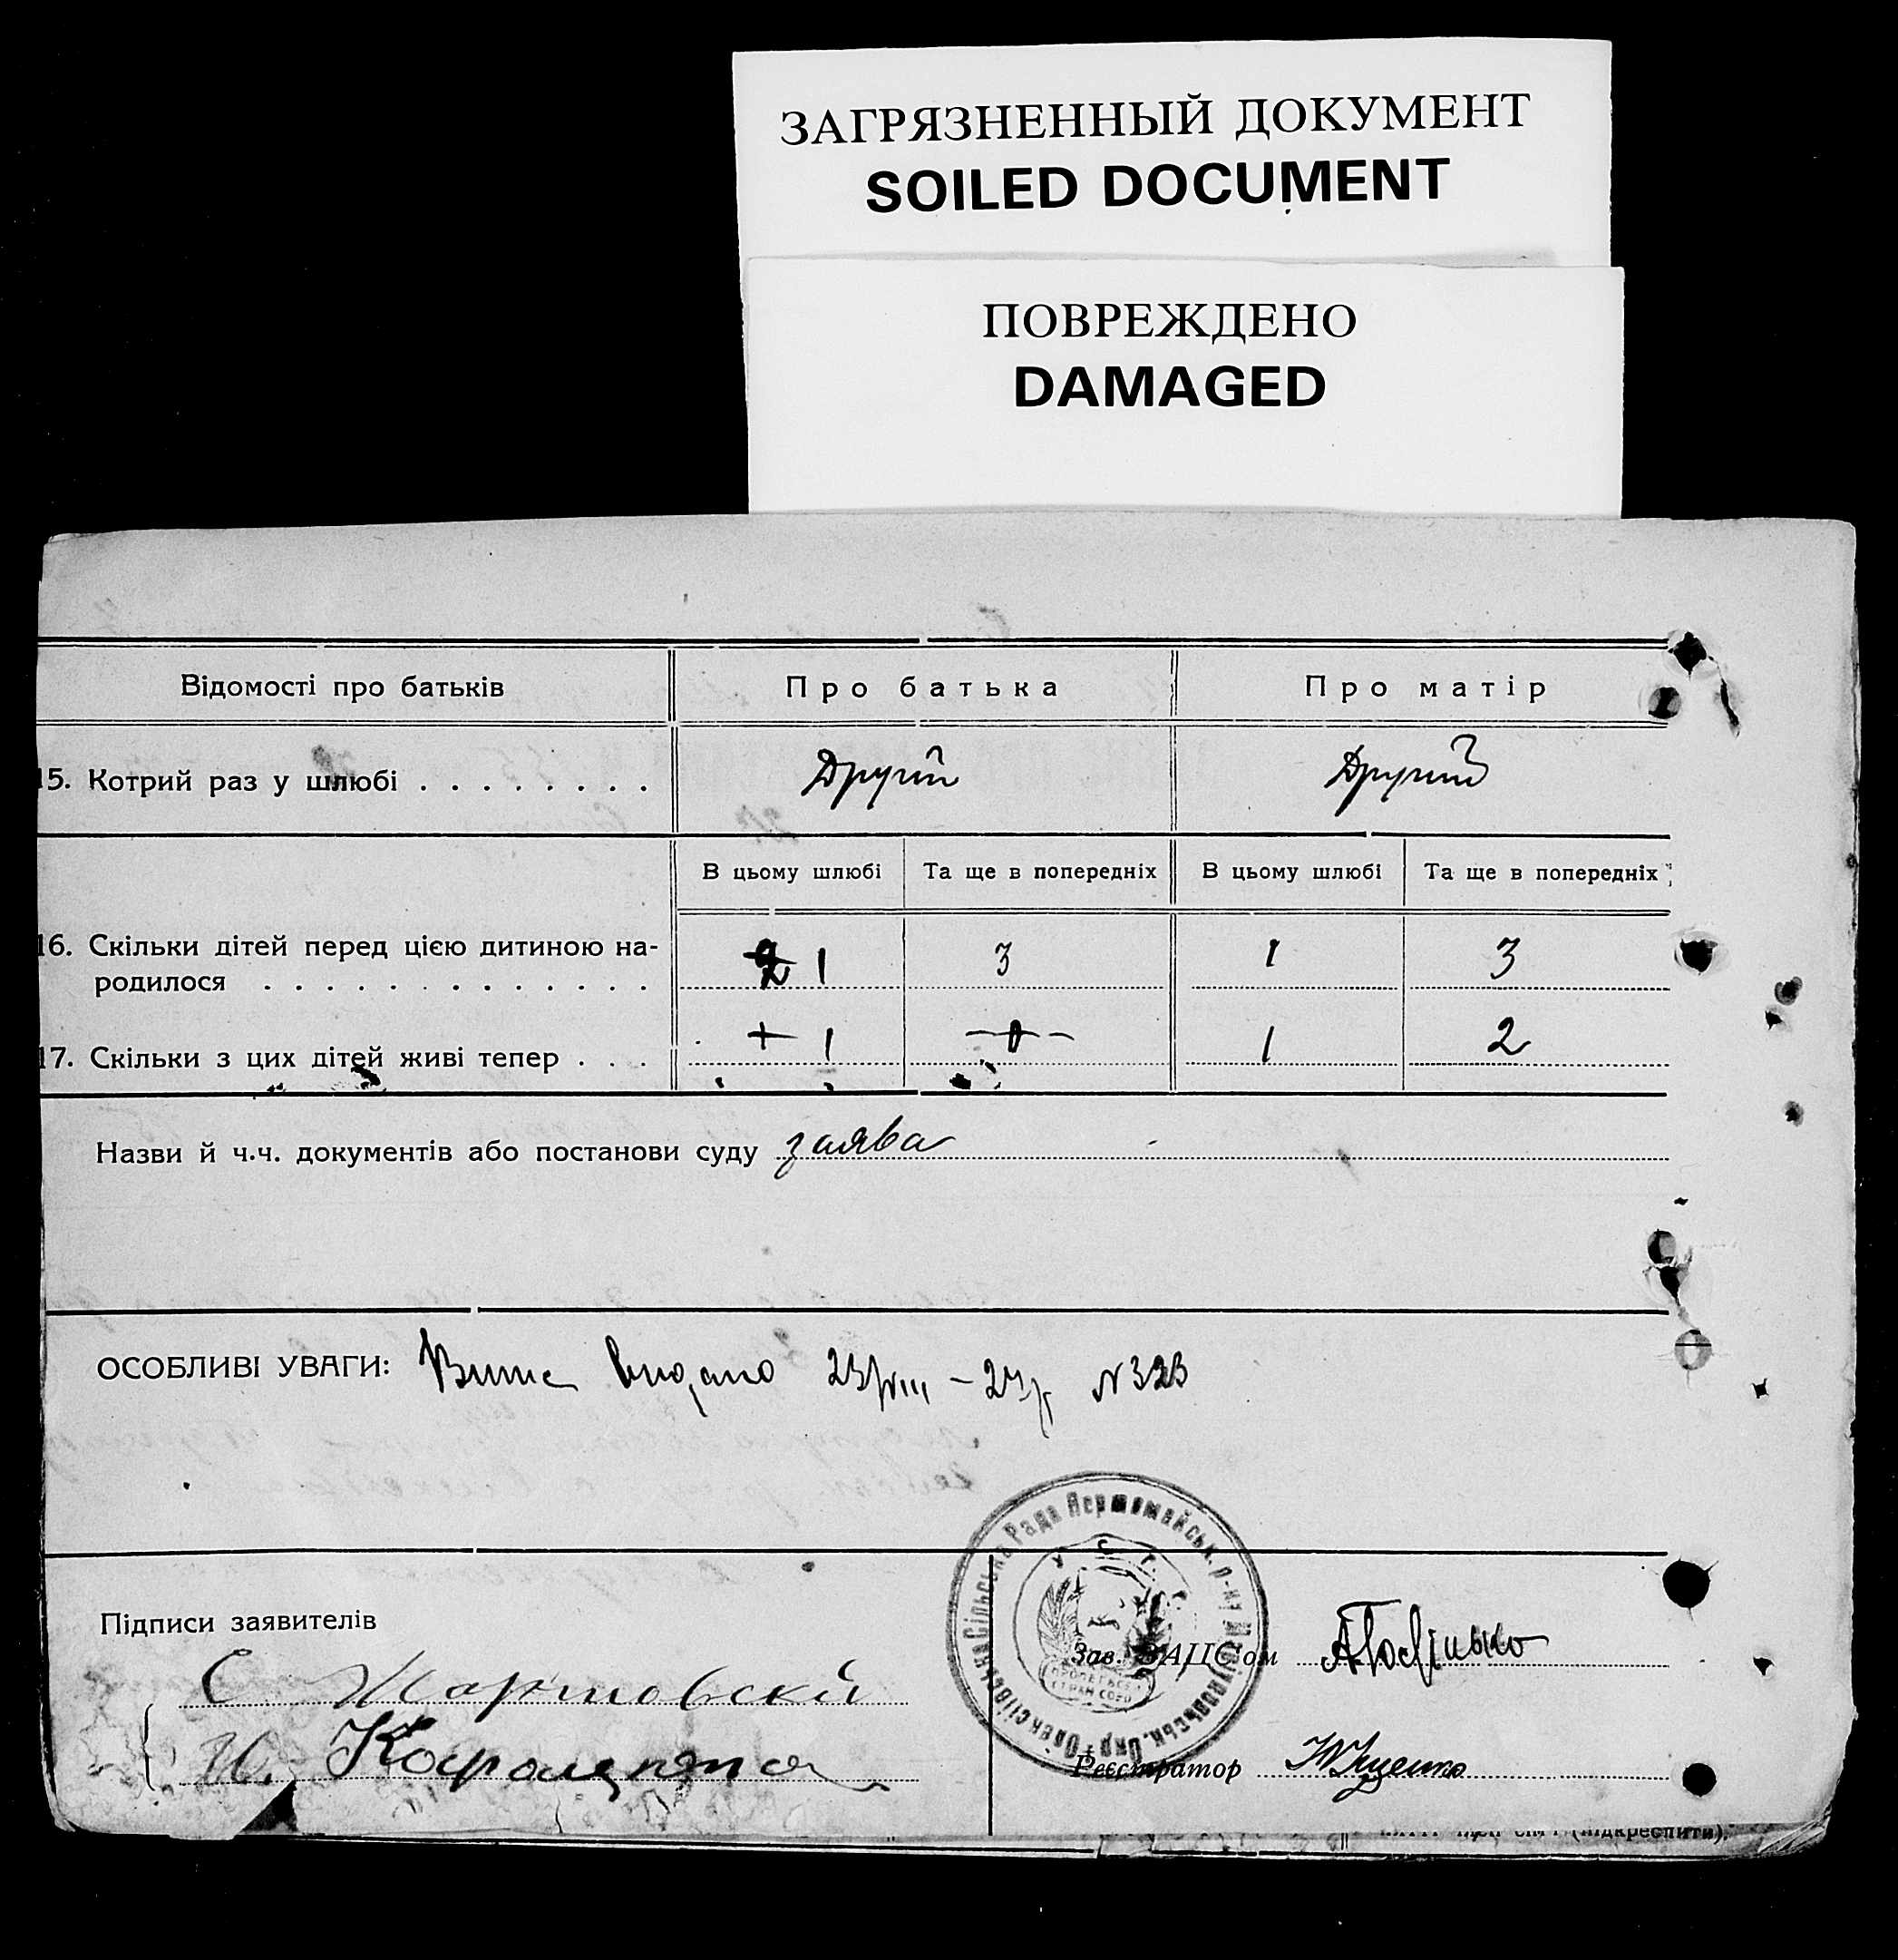 ЗАГРЯЗНЕННЫЙ ДОКУМЕНТ
SOILED DOCUMENT
ПОВРЕЖДЕНО
DAMAGED
Відомості про батьків Про батька Про матір
15. Котрий раз у шлюбі . . . . . . . . Другий Другий
В цьому шлюбі Та ще в попередніх В цьому шлюбі Та ще в попередніх
16. Скільки дітей перед цією дитиною на-
родилося . . . . . . . . . . . . . 1 3 1 3
17. Скільки з цих дітей живі тепер . . . 1 0 1 2
Назви й ч.ч. документів або постанови суду заява
ОСОБЛИВІ УВАГИ: видано 23/VIII - 24 р N 323
Підписи заявителів
Сільська Рада Первомайськ. р-ну Окр.
Зав. ЗАЦСом
С.
Реєстратор
(підкреслити).